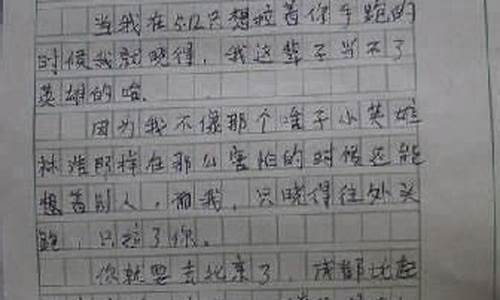 当我在5.12只想拉着你手跑的
时候我就晓得，我这辈子当不了
英雄的哈.
因为我不像那个啥子小英雄
林浩那样在那么害怕的时候还能
想着别人，而我，只晓得往外头
跑，只拉了你。
你就要去北京了，成都比起